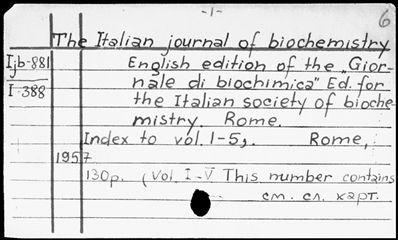 -1-
6
The Italian journal of biochemistry
Ijb-881
English edition of the "Gior-
I-388
nale di biochimica" Ed. for
the Italian society of bioche-
mistry. Rome.
Index to vol. I-5,. Rome,
1957
130p. (Vol. I-V This number contains
см. сл. карт.